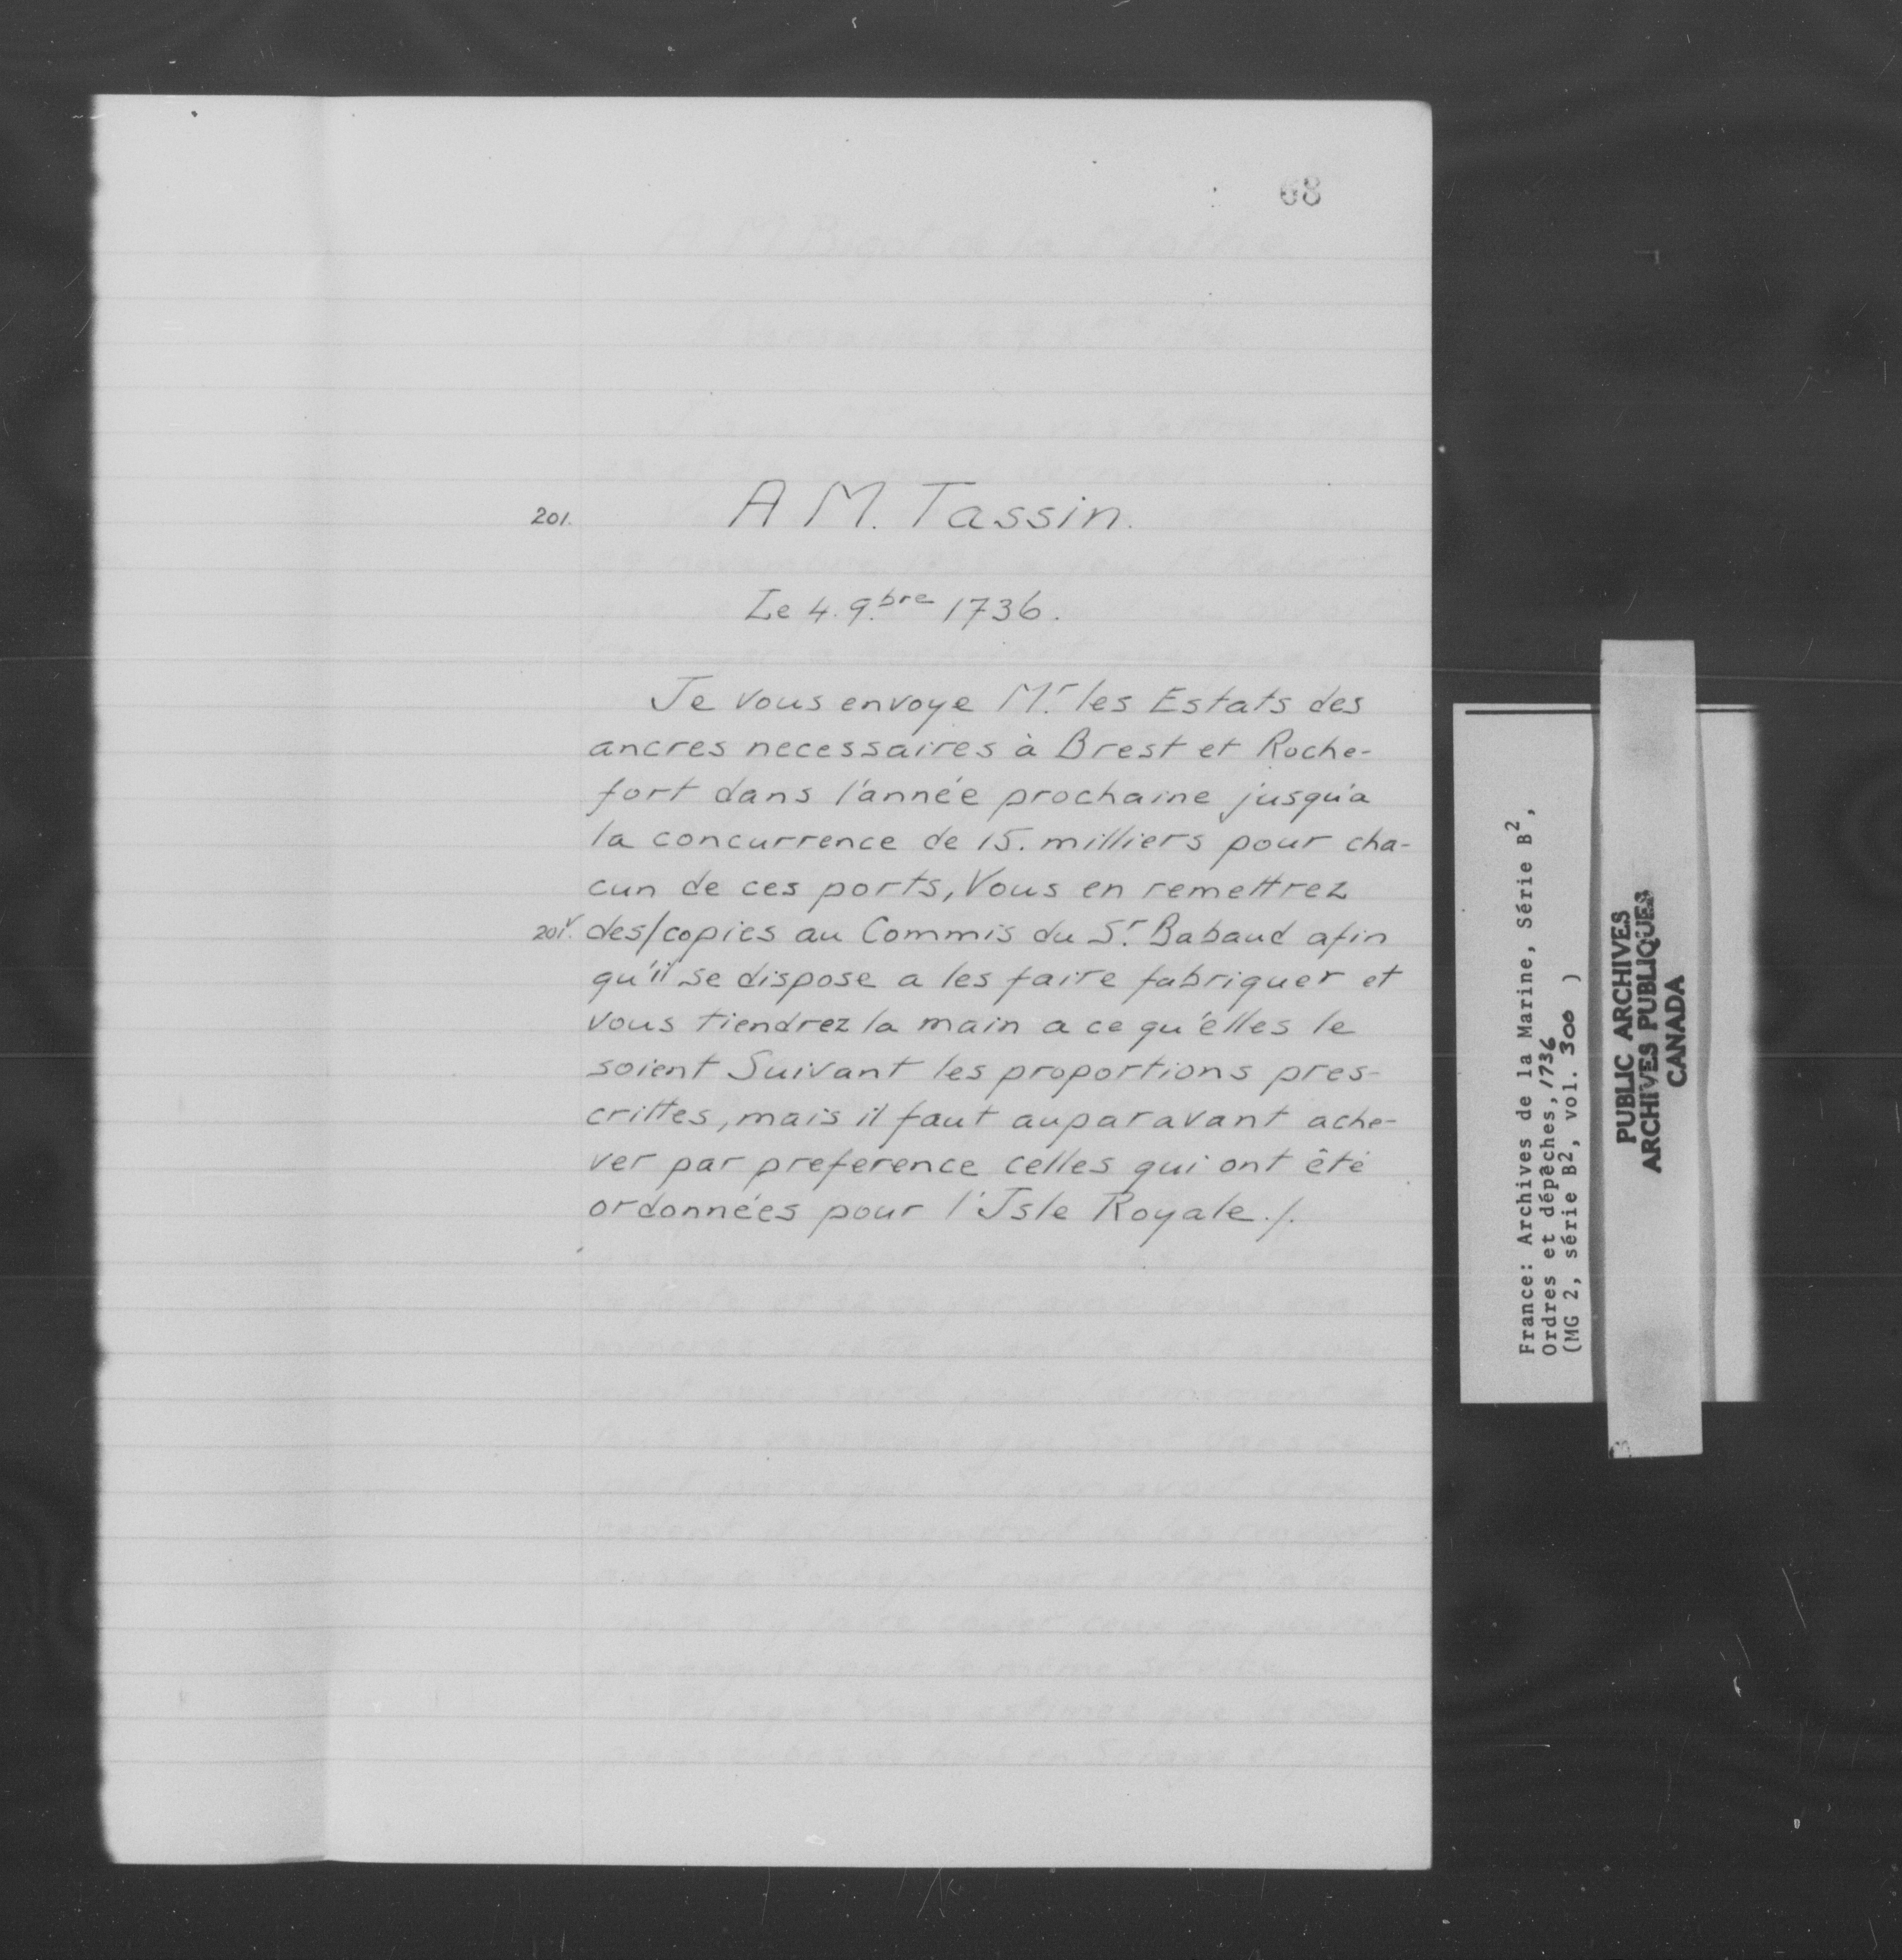 68
201. A M. Tassin.
Le 4. 9.bre 1736.
Je vous envoye Mr. les Estats des
ancres necessaires à Brest et Roche-
fort dans l'année prochaine jusqu'a
la concurrence de 15. milliers pour cha-
cun de ces ports, Vous en remettrez
201v. des/copies au Commis du Sr. Babaud afin
qu'il se dispose a les faire fabriquer et
vous tiendrez la main a ce qu'elles le
soient Suivant les proportions pres-
crittes, mais il faut auparavant ache-
ver par preference celles qui ont êté
ordonnées pour l'Isle Royale./.
France: Archives de la Marine, Série B2,
Ordres et dépêches, 1736
(MG 2, série B2, vol. 300 )
PUBLIC ARCHIVES
ARCHIVES PUBLIQUES
CANADA